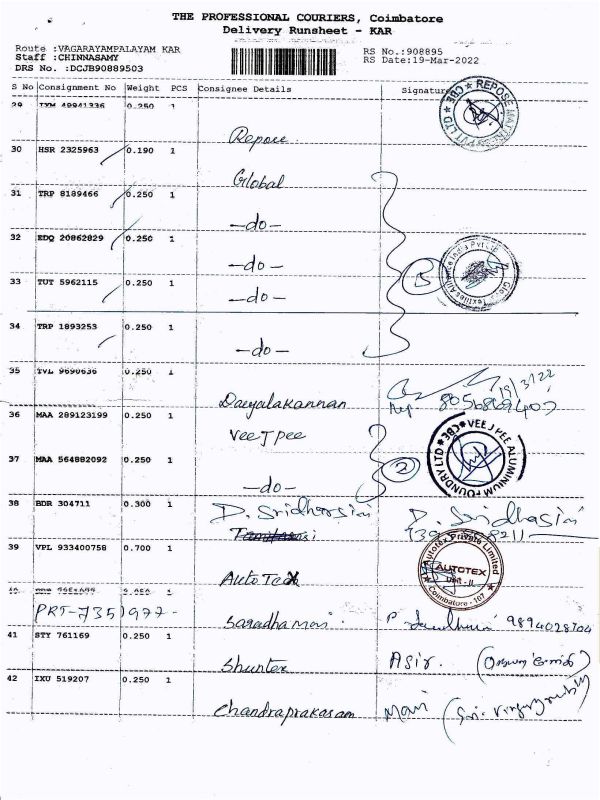 THE PROFESSIONAL COURIERS, Coimbatore
Delivery Runsheet - KAR
Route :VAGARAYAMPALAYAM KAR
Staff :CHINNASAMY
DRS No. :DCJB90889503
RS No.:908895
RS Date:19-Mar-2022
S No Consignment No Weight PCS Consignee Details Signature
29 IXM 49941336 0.250 1
Repose
30 HSR 2325963 0.190 1
Global
31 TRP 8189466 0.250 1
—do—
32 EDQ 20862829 0.250 1
—do—
33 TUT 5962115 0.250 1
—do—
5
34 TRP 1893253 0.250 1
—do—
35 TVL 9690636 0.250 1
Dayalakannan
19/3/22
36 MAA 289123199 0.250 1
Vee J pee
VEEJPEE ALUMINIUM FOUNDRY LTD ★ CBE ★
37 MAA 564882092 0.250 1
—do—
2
38 BDR 304711 0.300 1
D. Sridharsini D. Sridhasini
39 VPL 933400758 0.700 1
Auto Tex
Autotex Private Limited
AUTOTEX
Unit - II
Coimbatore - 107
PRT-7351977-
Saradhamani. 9894028704
41 STY 761169 0.250 1
Shuntex Asir.
42 IXU 519207 0.250 1
Chandraprakasam Mani